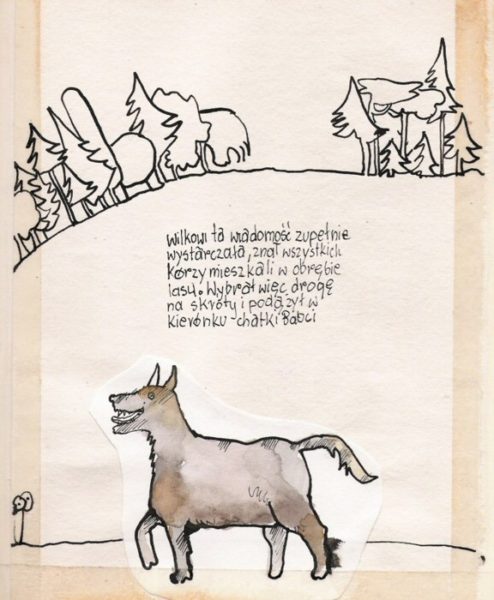 Wilkowi ta wiadomość zupełnie
wystarczała, znał wszystkich
kórzy mieszkali w obrębie
lasu. Wybrał więc drogę
na skróty i podążył w
kierónku - chatki Babci